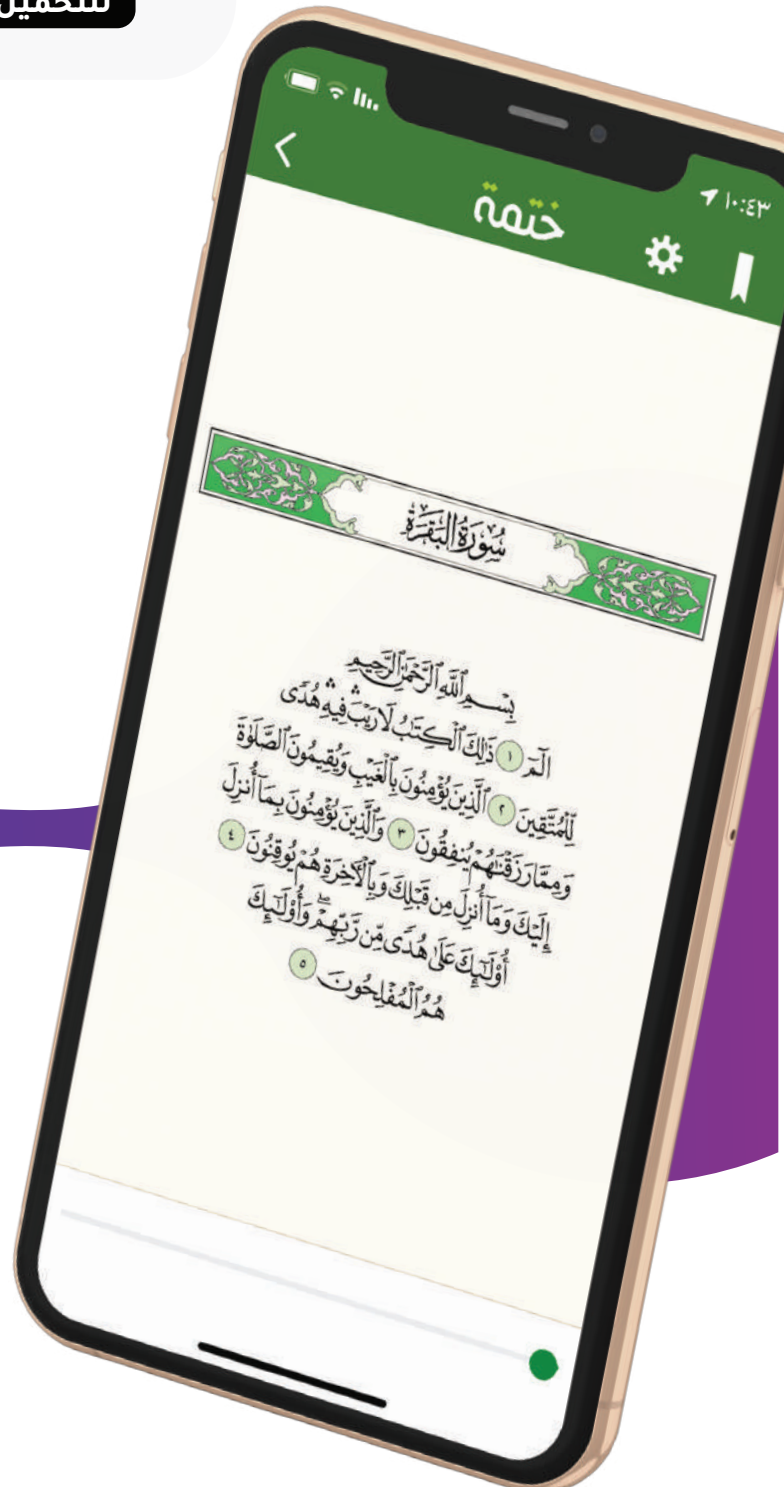 للتحميل
١٠:٤٣
ختمة
سُورَةُ الْبَقَرَةِ
بِسْمِ ٱللَّهِ ٱلرَّحْمَٰنِ ٱلرَّحِيمِ
الٓمٓ ١ ذَٰلِكَ ٱلْكِتَٰبُ لَا رَيْبَ ۛ فِيهِ ۛ هُدًى
لِّلْمُتَّقِينَ ٢ ٱلَّذِينَ يُؤْمِنُونَ بِٱلْغَيْبِ وَيُقِيمُونَ ٱلصَّلَوٰةَ
وَمِمَّا رَزَقْنَٰهُمْ يُنفِقُونَ ٣ وَٱلَّذِينَ يُؤْمِنُونَ بِمَآ أُنزِلَ
إِلَيْكَ وَمَآ أُنزِلَ مِن قَبْلِكَ وَبِٱلْءَاخِرَةِ هُمْ يُوقِنُونَ ٤
أُو۟لَٰٓئِكَ عَلَىٰ هُدًى مِّن رَّبِّهِمْ ۖ وَأُو۟لَٰٓئِكَ
هُمُ ٱلْمُفْلِحُونَ ٥